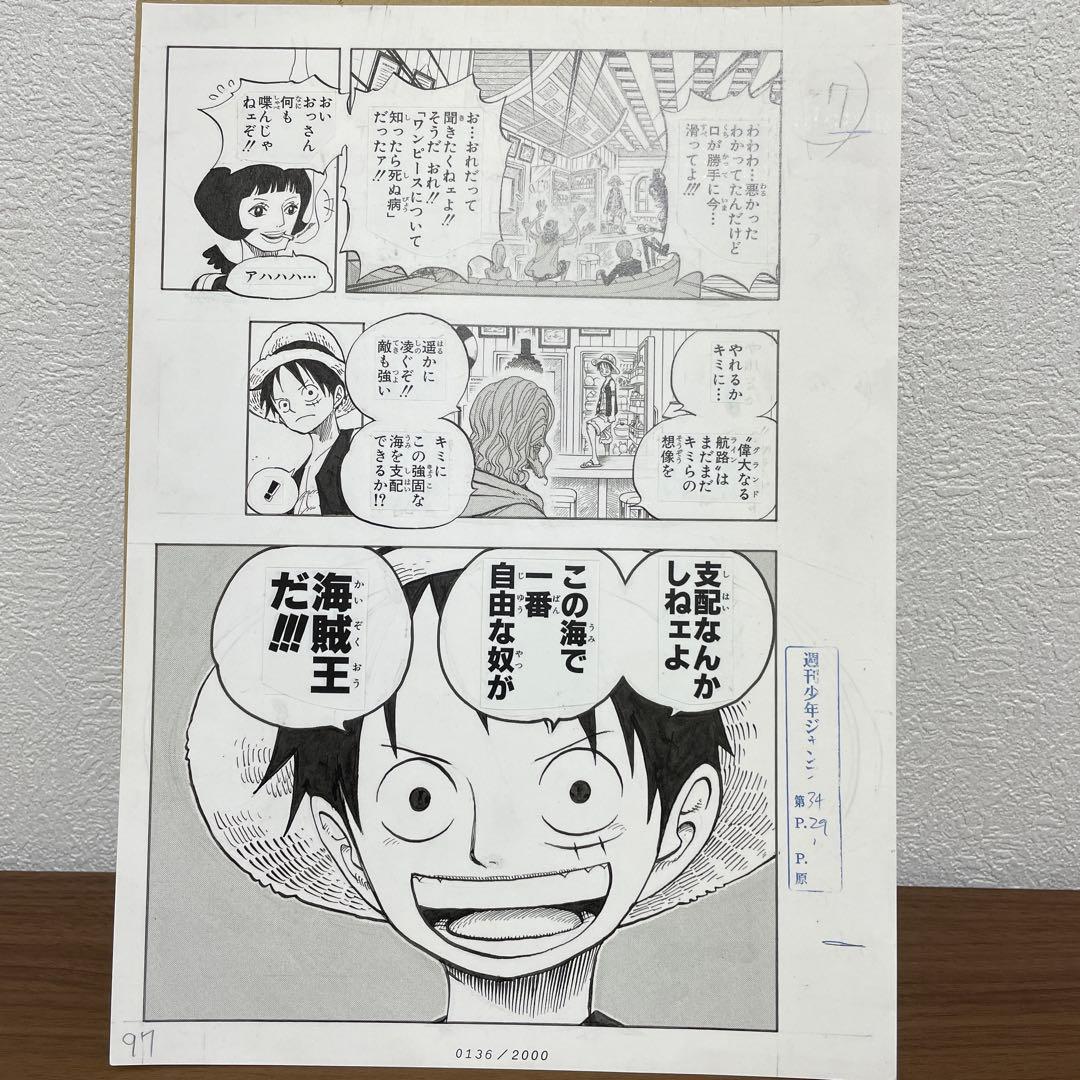 7
わわわ…悪かった
わかってたんだけど
口が勝手に今…
滑ってよ!!!
お…おれだって
聞きたくねェよ!!
そうだ おれ!!
「ワンピースについて
知ったら死ぬ病」
だったァ!!
おい
おっさん
何も
喋んじゃ
ねェぞ!!
アハハハ…
やれるか
キミに…
“偉大なる
航路”は
まだまだ
キミらの
想像を
遥かに
凌ぐぞ!!
敵も強い
キミに
この強固な
海を支配
できるか!?
!
支配なんか
しねェよ
この海で
一番
自由な奴が
海賊王
だ!!!
週刊少年ジャンプ
第34
P.29
P.
原
97
0136/2000